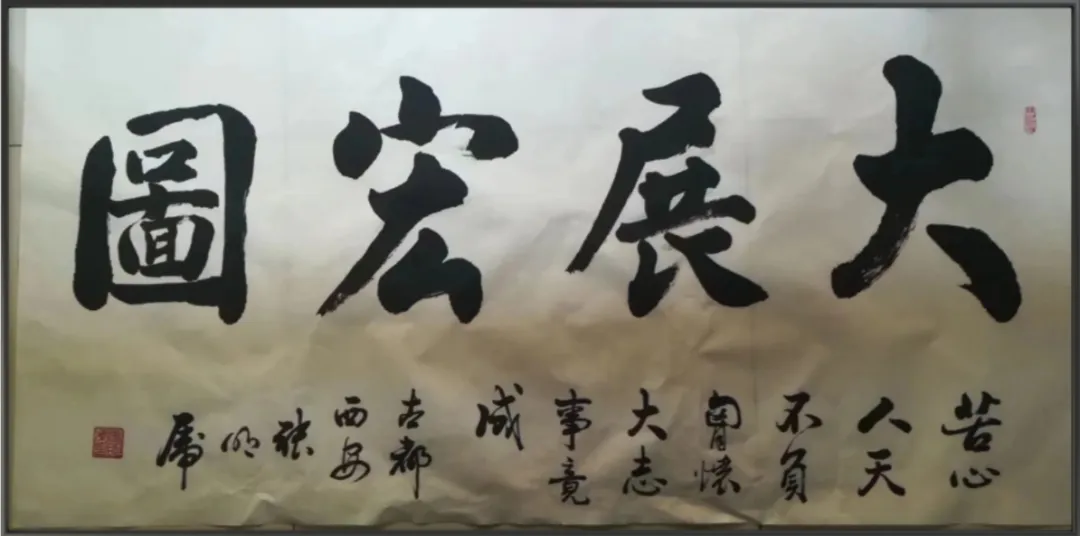 大展宏圖
苦心
人天
不負
胷懷
大志
事竟
成
古都
西安
張
虎